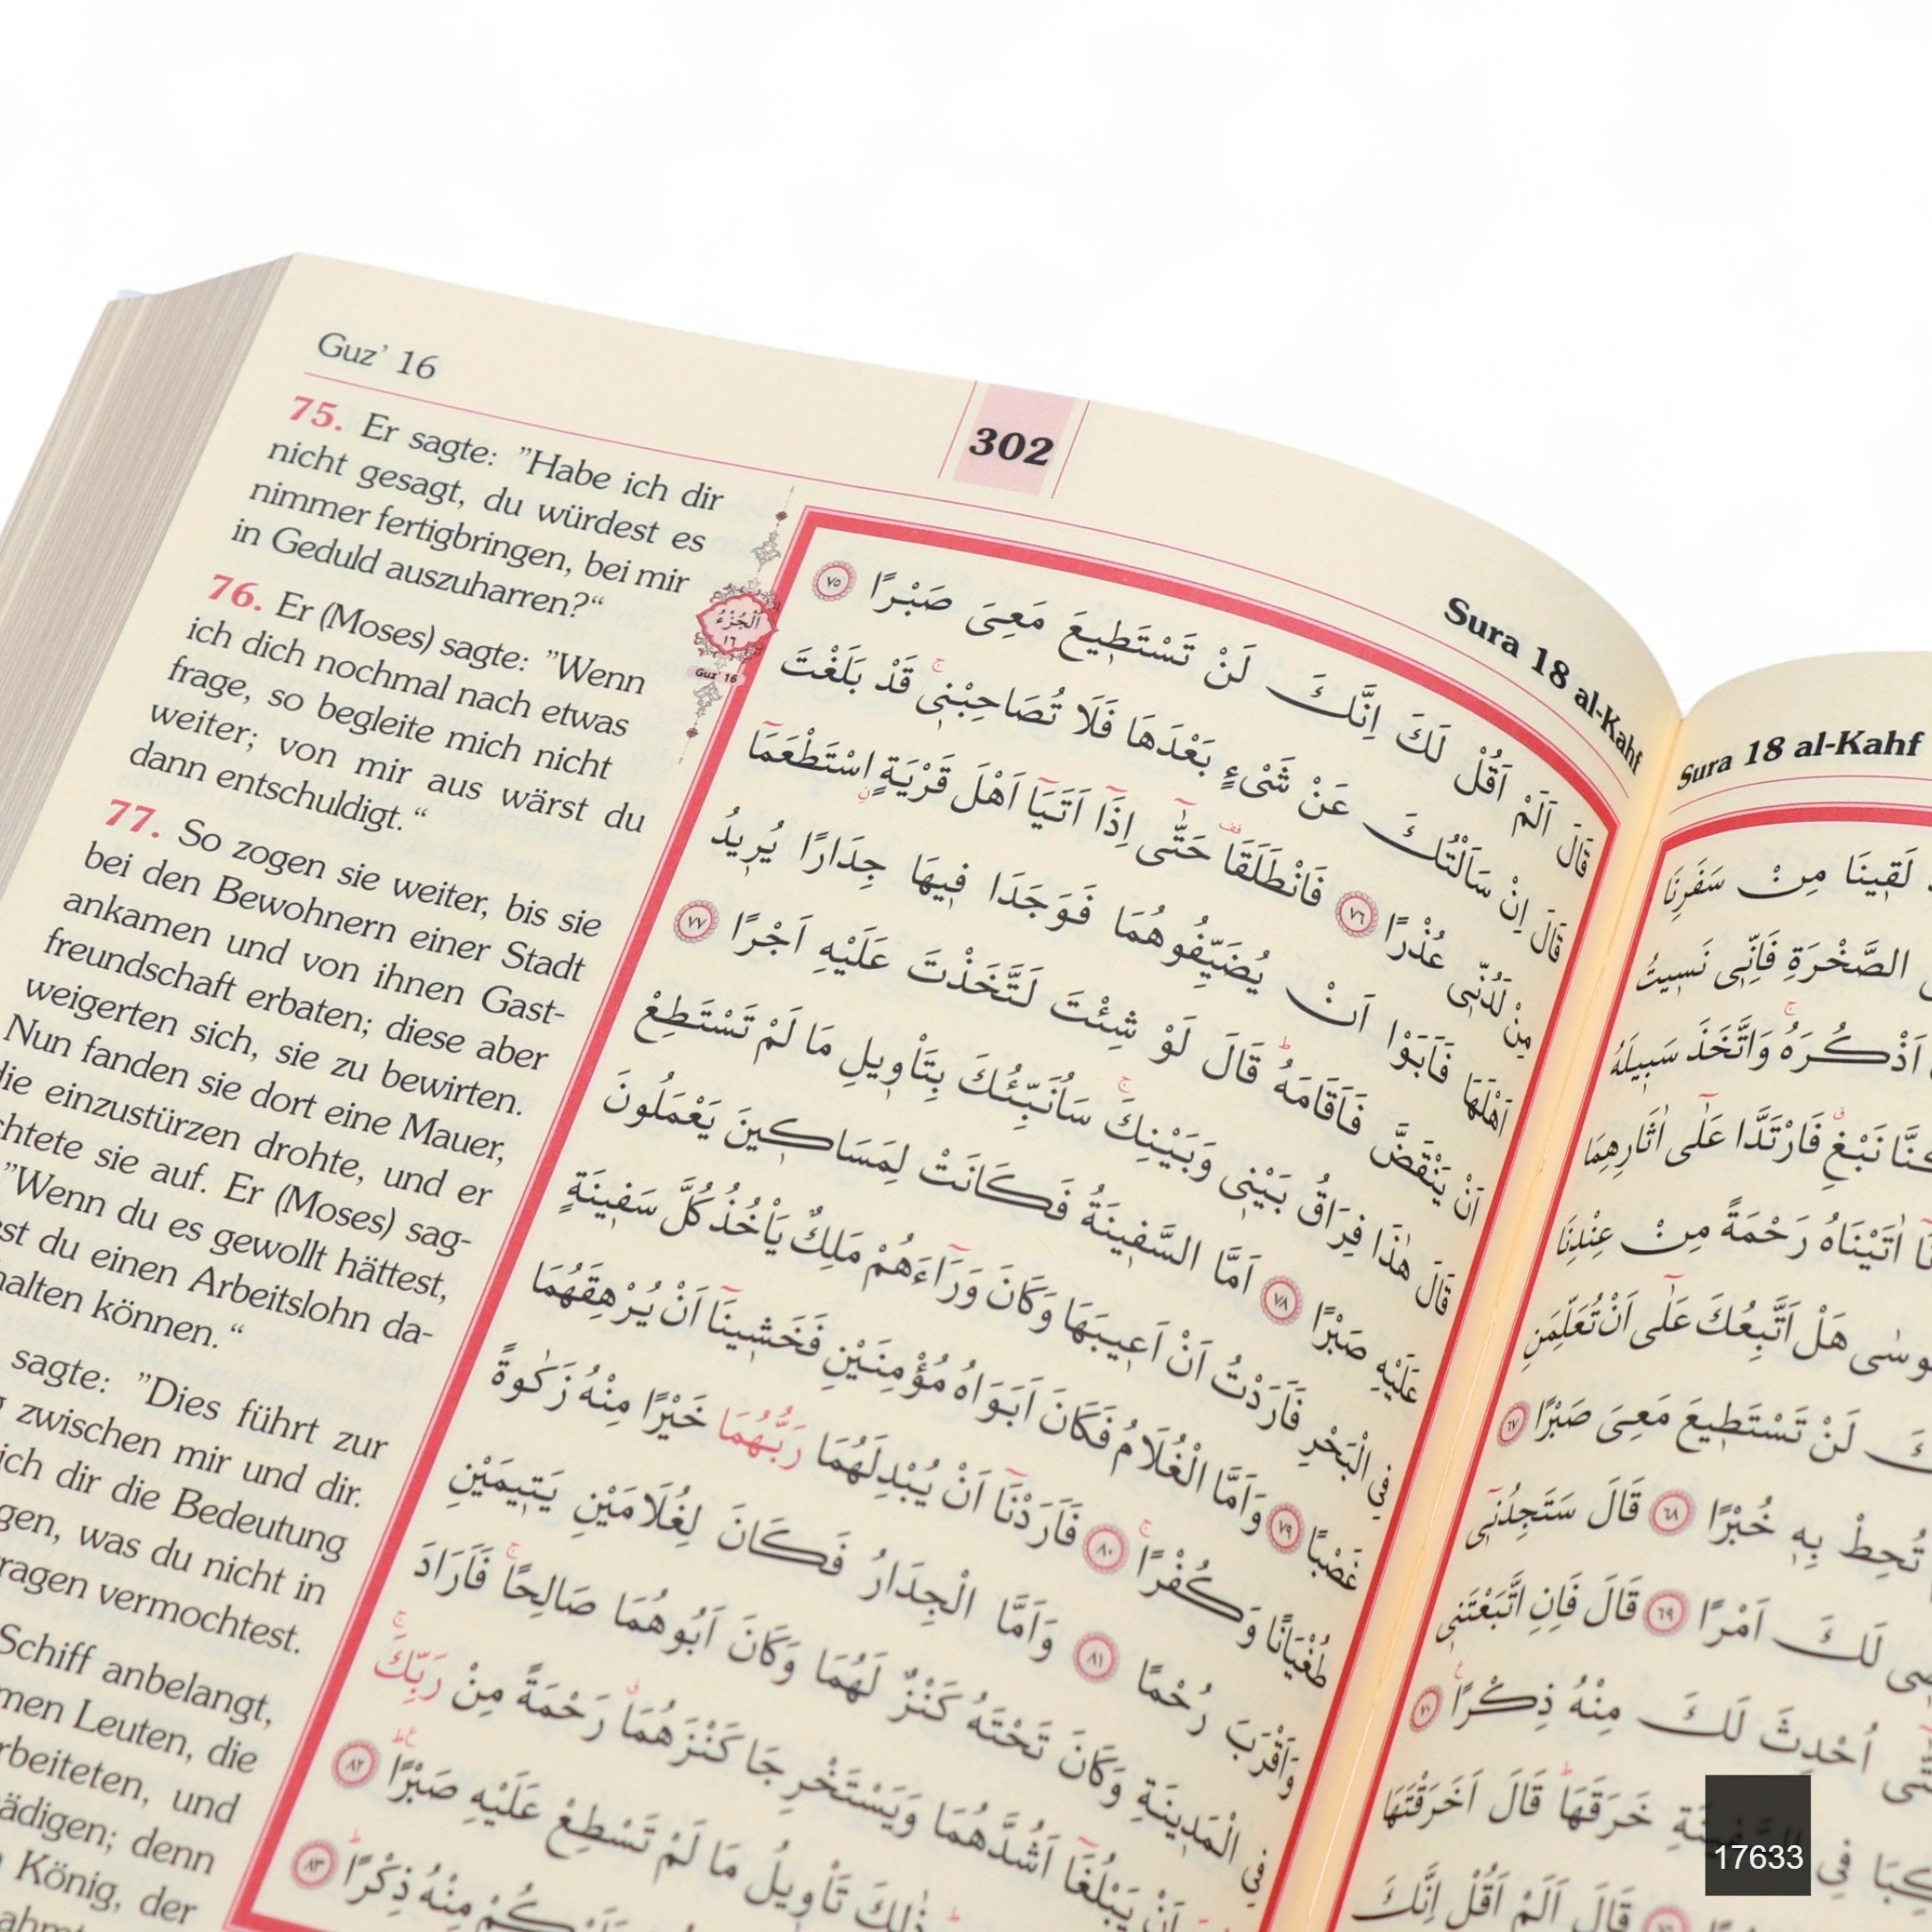 Guz’ 16
302
Sura 18 al-Kahf
75. Er sagte: ”Habe ich dir
nicht gesagt, du würdest es
nimmer fertigbringen, bei mir
in Geduld auszuharren?“
76. Er (Moses) sagte: ”Wenn
ich dich nochmal nach etwas
frage, so begleite mich nicht
weiter; von mir aus wärst du
dann entschuldigt. “
77. So zogen sie weiter, bis sie
bei den Bewohnern einer Stadt
ankamen und von ihnen Gast-
freundschaft erbaten; diese aber
weigerten sich, sie zu bewirten.
Nun fanden sie dort eine Mauer,
die einzustürzen drohte, und er
chtete sie auf. Er (Moses) sag-
”Wenn du es gewollt hättest,
st du einen Arbeitslohn da-
halten können. “
sagte: ”Dies führt zur
zwischen mir und dir.
ich dir die Bedeutung
gen, was du nicht in
ragen vermochtest.
Schiff anbelangt,
men Leuten, die
rbeiteten, und
ädigen; denn
König, der
اَلْجُزْءُ
١٦
Guz’ 16
قَالَ اَلَمْ اَقُلْ لَكَ اِنَّكَ لَنْ تَسْتَطٖيعَ مَعِىَ صَبْرًا ٧٥
قَالَ اِنْ سَاَلْتُكَ عَنْ شَىْءٍ بَعْدَهَا فَلَا تُصَاحِبْنٖىۚ قَدْ بَلَغْتَ
مِنْ لَدُنّٖى عُذْرًا ٧٦ فَانْطَلَقَا حَتّٰٓى اِذَٓا اَتَيَٓا اَهْلَ قَرْيَةٍ اِسْتَطْعَمَٓا
اَهْلَهَا فَاَبَوْا اَنْ يُضَيِّفُوهُمَا فَوَجَدَا فٖيهَا جِدَارًا يُرٖيدُ
اَنْ يَنْقَضَّ فَاَقَامَهُؕ قَالَ لَوْ شِئْتَ لَتَّخَذْتَ عَلَيْهِ اَجْرًا ٧٧
قَالَ هٰذَا فِرَاقُ بَيْنٖى وَبَيْنِكَۚ سَاُنَبِّئُكَ بِتَاْوٖيلِ مَا لَمْ تَسْتَطِعْ
عَلَيْهِ صَبْرًا ٧٨ اَمَّا السَّفٖينَةُ فَكَانَتْ لِمَسَاكٖينَ يَعْمَلُونَ
فِى الْبَحْرِ فَاَرَدْتُ اَنْ اَعٖيبَهَا وَكَانَ وَرَٓاءَهُمْ مَلِكٌ يَاْخُذُ كُلَّ سَفٖينَةٍ
غَصْبًا ٧٩ وَاَمَّا الْغُلَامُ فَكَانَ اَبَوَاهُ مُؤْمِنَيْنِ فَخَشٖينَٓا اَنْ يُرْهِقَهُمَا
طُغْيَانًا وَكُفْرًاۚ ٨٠ فَاَرَدْنَٓا اَنْ يُبْدِلَهُمَا رَبُّهُمَا خَيْرًا مِنْهُ زَكٰوةً
وَاَقْرَبَ رُحْمًا ٨١ وَاَمَّا الْجِدَارُ فَكَانَ لِغُلَامَيْنِ يَتٖيمَيْنِ
فِى الْمَدٖينَةِ وَكَانَ تَحْتَهُ كَنْزٌ لَهُمَا وَكَانَ اَبُوهُمَا صَالِحًاۚ فَاَرَادَ
اَنْ يَبْلُغَٓا اَشُدَّهُمَا وَيَسْتَخْرِجَا كَنْزَهُمَا رَحْمَةً مِنْ رَبِّكَۚ
ذٰلِكَ تَاْوٖيلُ مَا لَمْ تَسْطِعْ عَلَيْهِ صَبْرًا ٨٢
مِنْهُ ذِكْرًاؕ ٨٣
Sura 18 al-Kahf
لَقٖينَا مِنْ سَفَرِنَا
الصَّخْرَةِ فَاِنّٖى نَسٖيتُ
اَذْكُرَهُۚ وَاتَّخَذَ سَبٖيلَهُ
كُنَّا نَبْغِ فَارْتَدَّا عَلٰٓى اٰثَارِهِمَا
اٰتَيْنَاهُ رَحْمَةً مِنْ عِنْدِنَا
هَلْ اَتَّبِعُكَ عَلٰٓى اَنْ تُعَلِّمَنِ
لَنْ تَسْتَطٖيعَ مَعِىَ صَبْرًا ٦٧
تُحِطْ بِهٖ خُبْرًا ٦٨ قَالَ سَتَجِدُنٖٓى
لَكَ اَمْرًا ٦٩ قَالَ فَاِنِ اتَّبَعْتَنٖى
اُحْدِثَ لَكَ مِنْهُ ذِكْرًا ٧٠
خَرَقَهَاؕ قَالَ اَخَرَقْتَهَا
قَالَ اَلَمْ اَقُلْ اِنَّكَ
17633